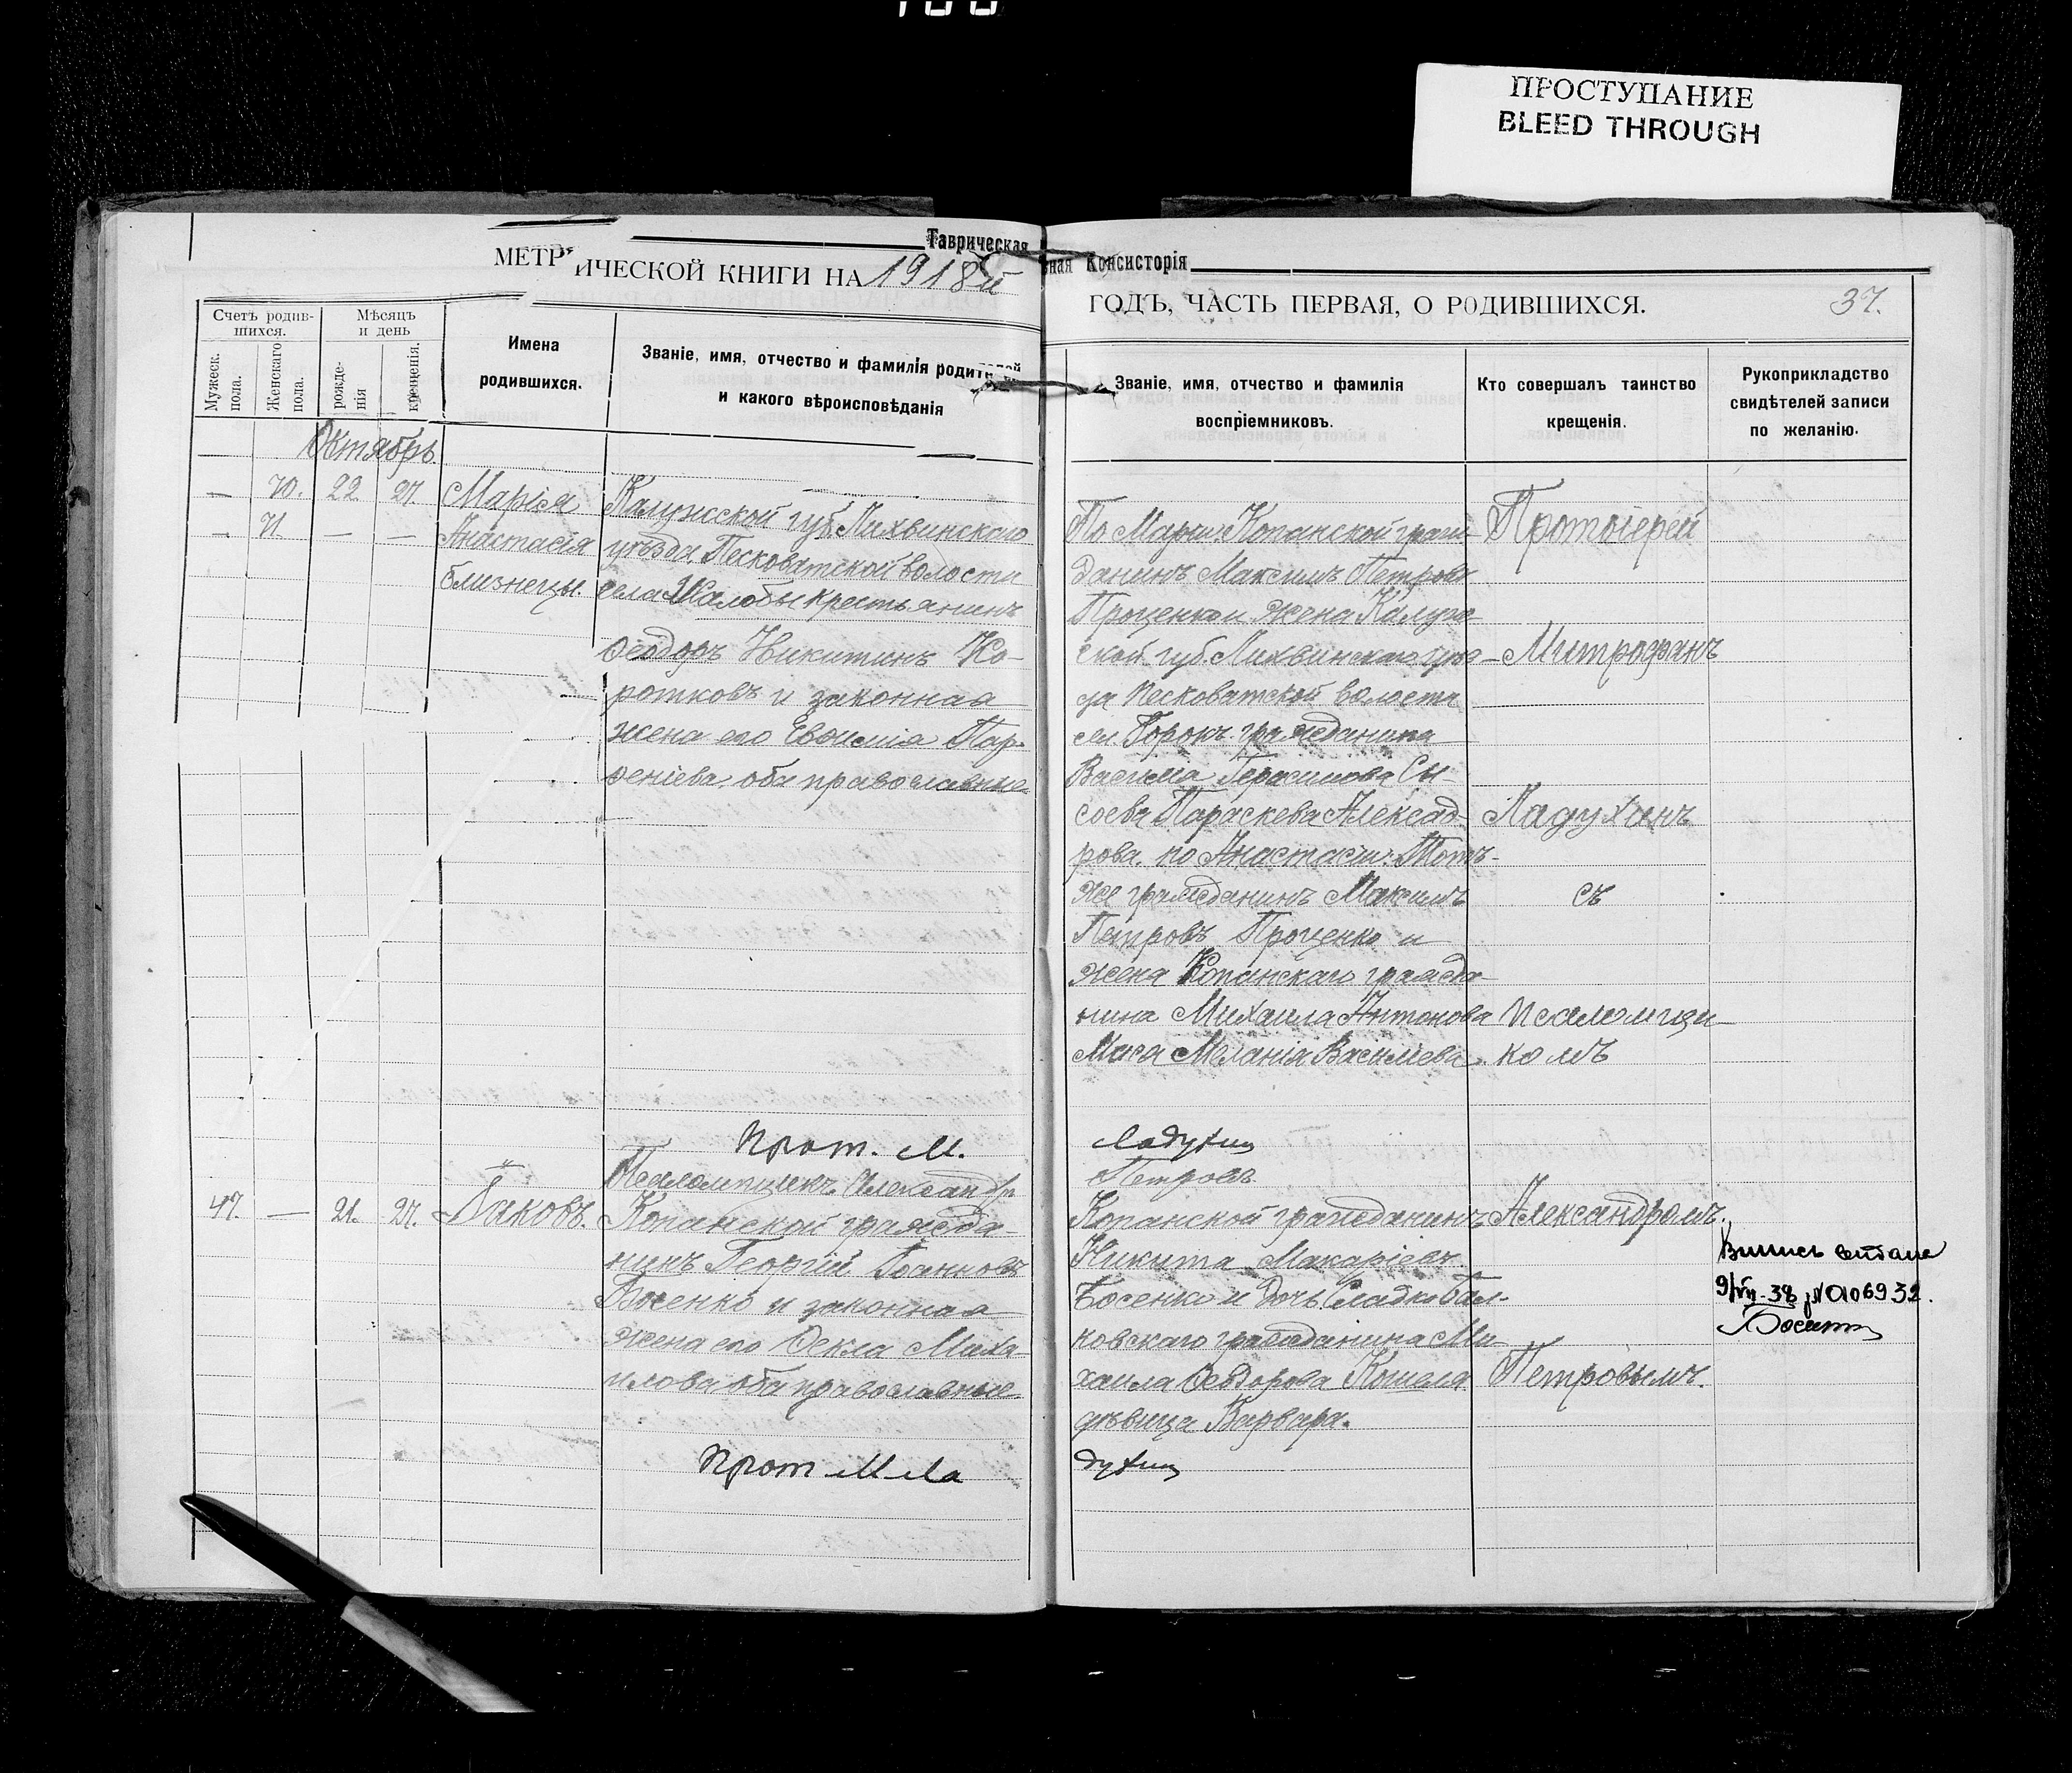 ПРОСТУПАНИЕ
BLEED THROUGH
Таврическая
ная Консисторія
МЕТР
ИЧЕСКОЙ КНИГИ НА 1918й
ГОДЪ, ЧАСТЬ ПЕРВАЯ, О РОДИВШИХСЯ.
37.
Счетъ родив-
шихся.
Мѣсяцъ
и день
Мужеск.
пола.
Женскаго
пола.
рожде-
нія
крещенія.
Имена
родившихся.
Званіе, имя, отчество и фамилія родителей
и какого вѣроисповѣданія
Званіе, имя, отчество и фамилія
воспріемниковъ.
Кто совершалъ таинство
крещенія.
Рукоприкладство
свидѣтелей записи
по желанію.
Октябрь.
— 70. 22 27.
— 71. — —
Марія
Анастасія
близнецы.
Калужской губ. Лихвинскаго
уѣзда, Песковатской волости
села Жалобы крестьянинъ
Ѳеодоръ Никитинъ Ко-
ротковъ и законная
жена его Евѳимія Пар-
ѳеніева, оба православные
По Маріи: Копанской граж-
данинъ Максимъ Петровъ
Проценко и жена Калуж-
ской губ. Лихвинскаго уѣз-
да Песковатской волости
сел. Горокъ гражданина
Василія Герасимова Сы-
соева Параскева Алексад-
рова. по Анастасіи: Тотъ-
же гражданинъ Максимъ
Петровъ Проценко и
жена Копанскаго гражда-
нина Михаила Антонова
Меланія Василіева.
Протоіерей
Митрофанъ
Ладухинъ
съ
псаломщи-
комъ
Прот. М.
Ладухин
Псаломщикъ Александр
Петровъ
47. — 21. 27.
Іаковъ.
Копанской гражда-
нинъ Георгій Іоанновъ
Босенко и законная
жена его Ѳекла Миха-
илова оба православные.
Копанской гражданинъ
Никита Макаріевъ
Босенко и дочь Сладко-Бал-
ковскаго гражданина Ми-
хаила Ѳеодорова Кошеля
дѣвица Варвара.
Александромъ
Петровымъ.
Выпись выдана
Прот М Ла
духин